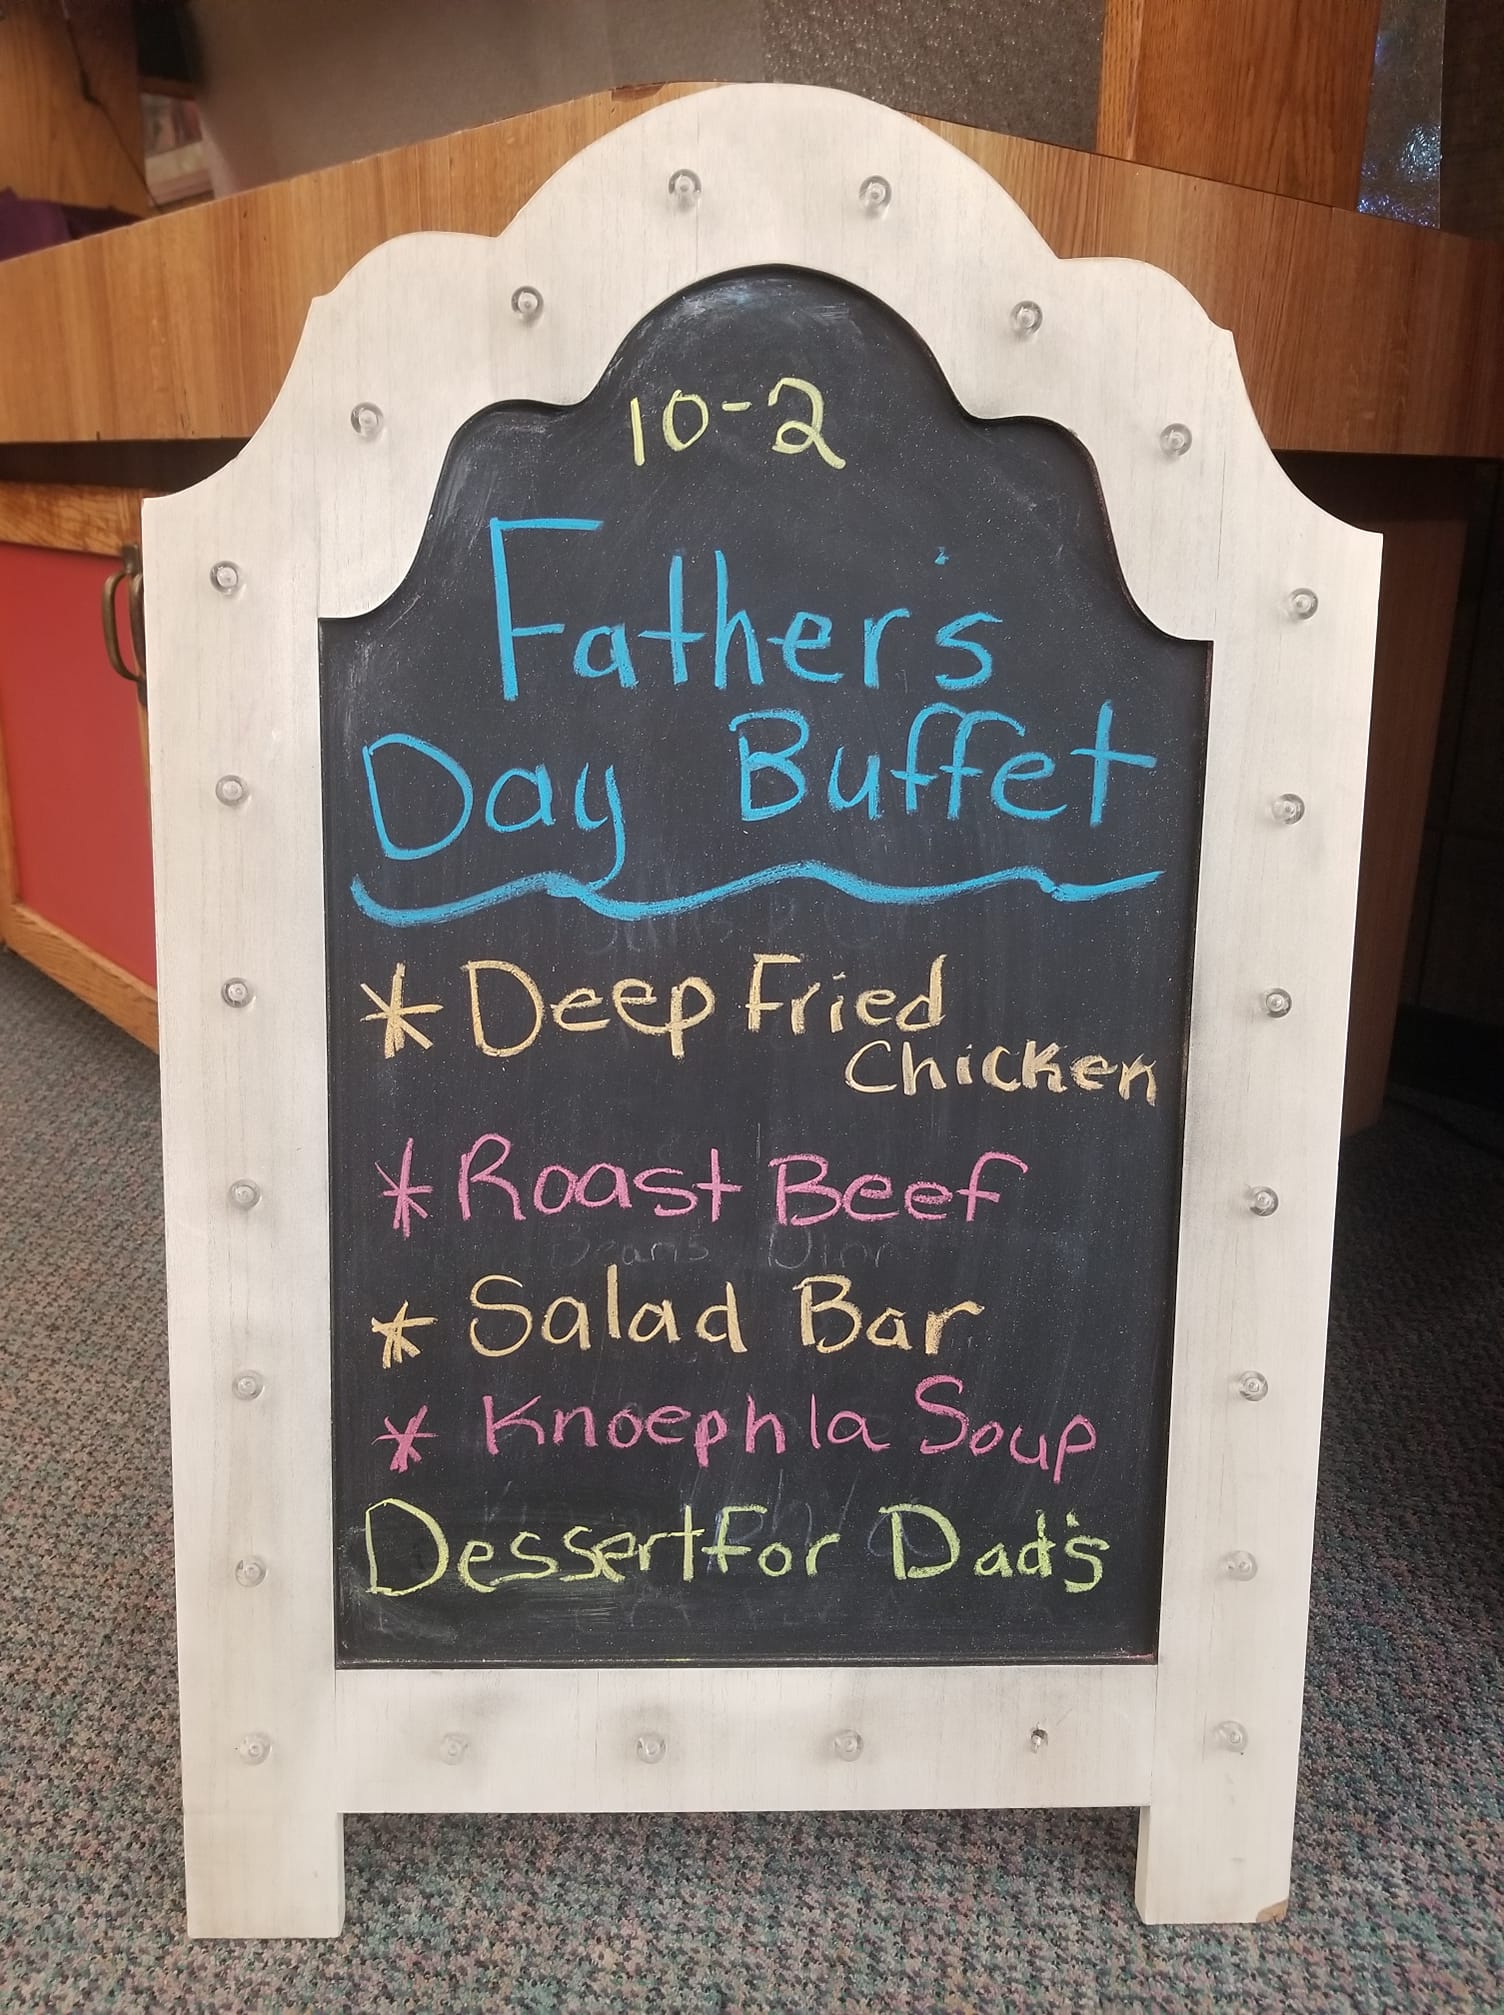 10-2
Father's
Day Buffet
* Deep Fried
Chicken
* Roast Beef
* Salad Bar
* Knoephla Soup
Dessert for Dad's